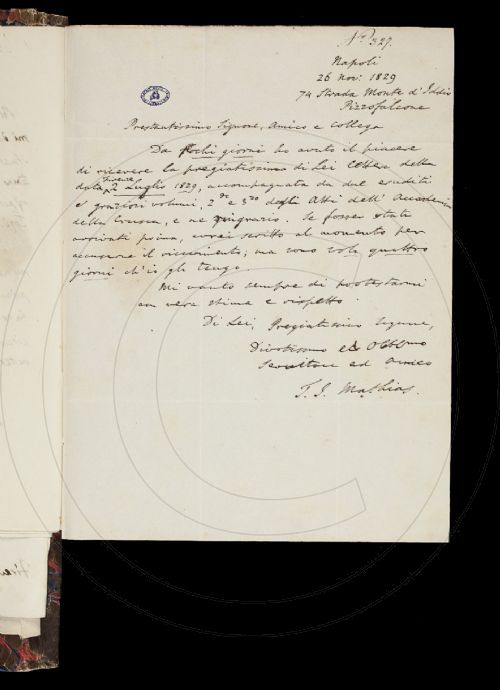 No 327.
Napoli
26 nov: 1829
74 Strada Monte d'Iddio
Pizzofalcone
Prestantissimo Signore, Amico e Collega
Da pochi giorni ho avuto il piacere
di ricevere la pregiatissima di Lei della
data Firenze 2 Luglio 1829, accompagnata da due eruditi
e graziosi volumi, 2do e 3zo degli Atti dell' Accademia
della Crusca, e ne ringrazio. Se fossero state
arrivati prima, avrei scritto al momento per
accusarne il ricevimento; ma sono soli quattro
giorni ch'io gli tengo.
Mi vanto sempre di protestarmi
con vera stima e rispetto
Di Lei, Pregiatissimo Signore,
Divotissimo ed Obbmo
Servitore ed Amico
T. J. Mathias.